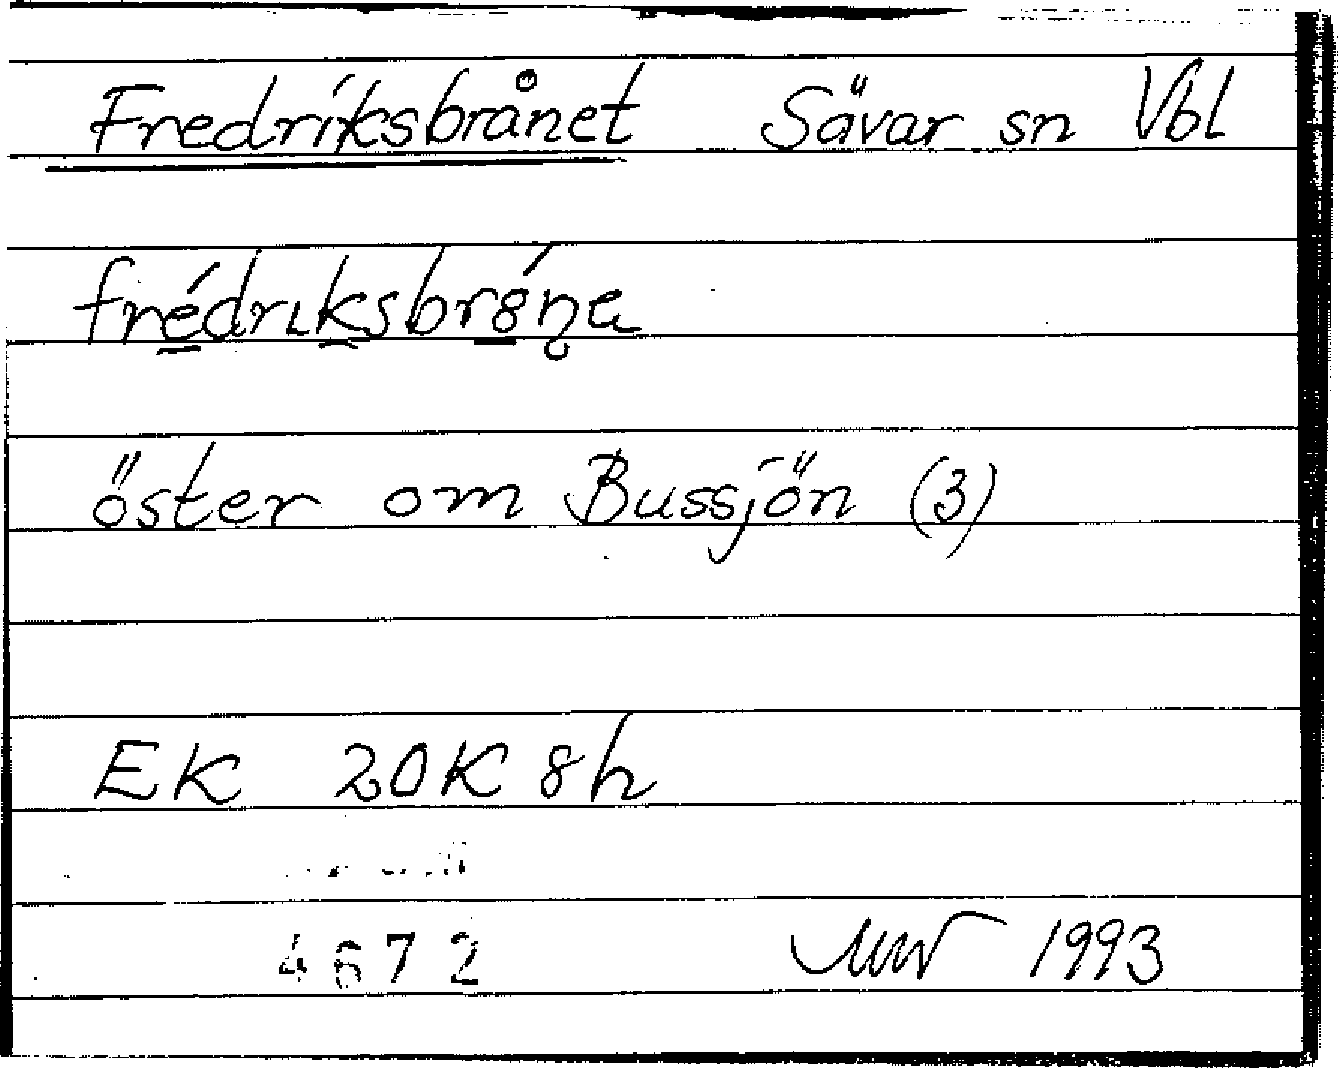 Fredriksbrånet Sävar sn Vbl
frédrıksbrȯ́n̥a
öster om Bussjön (3)
EK 20K 8h
4672 1993